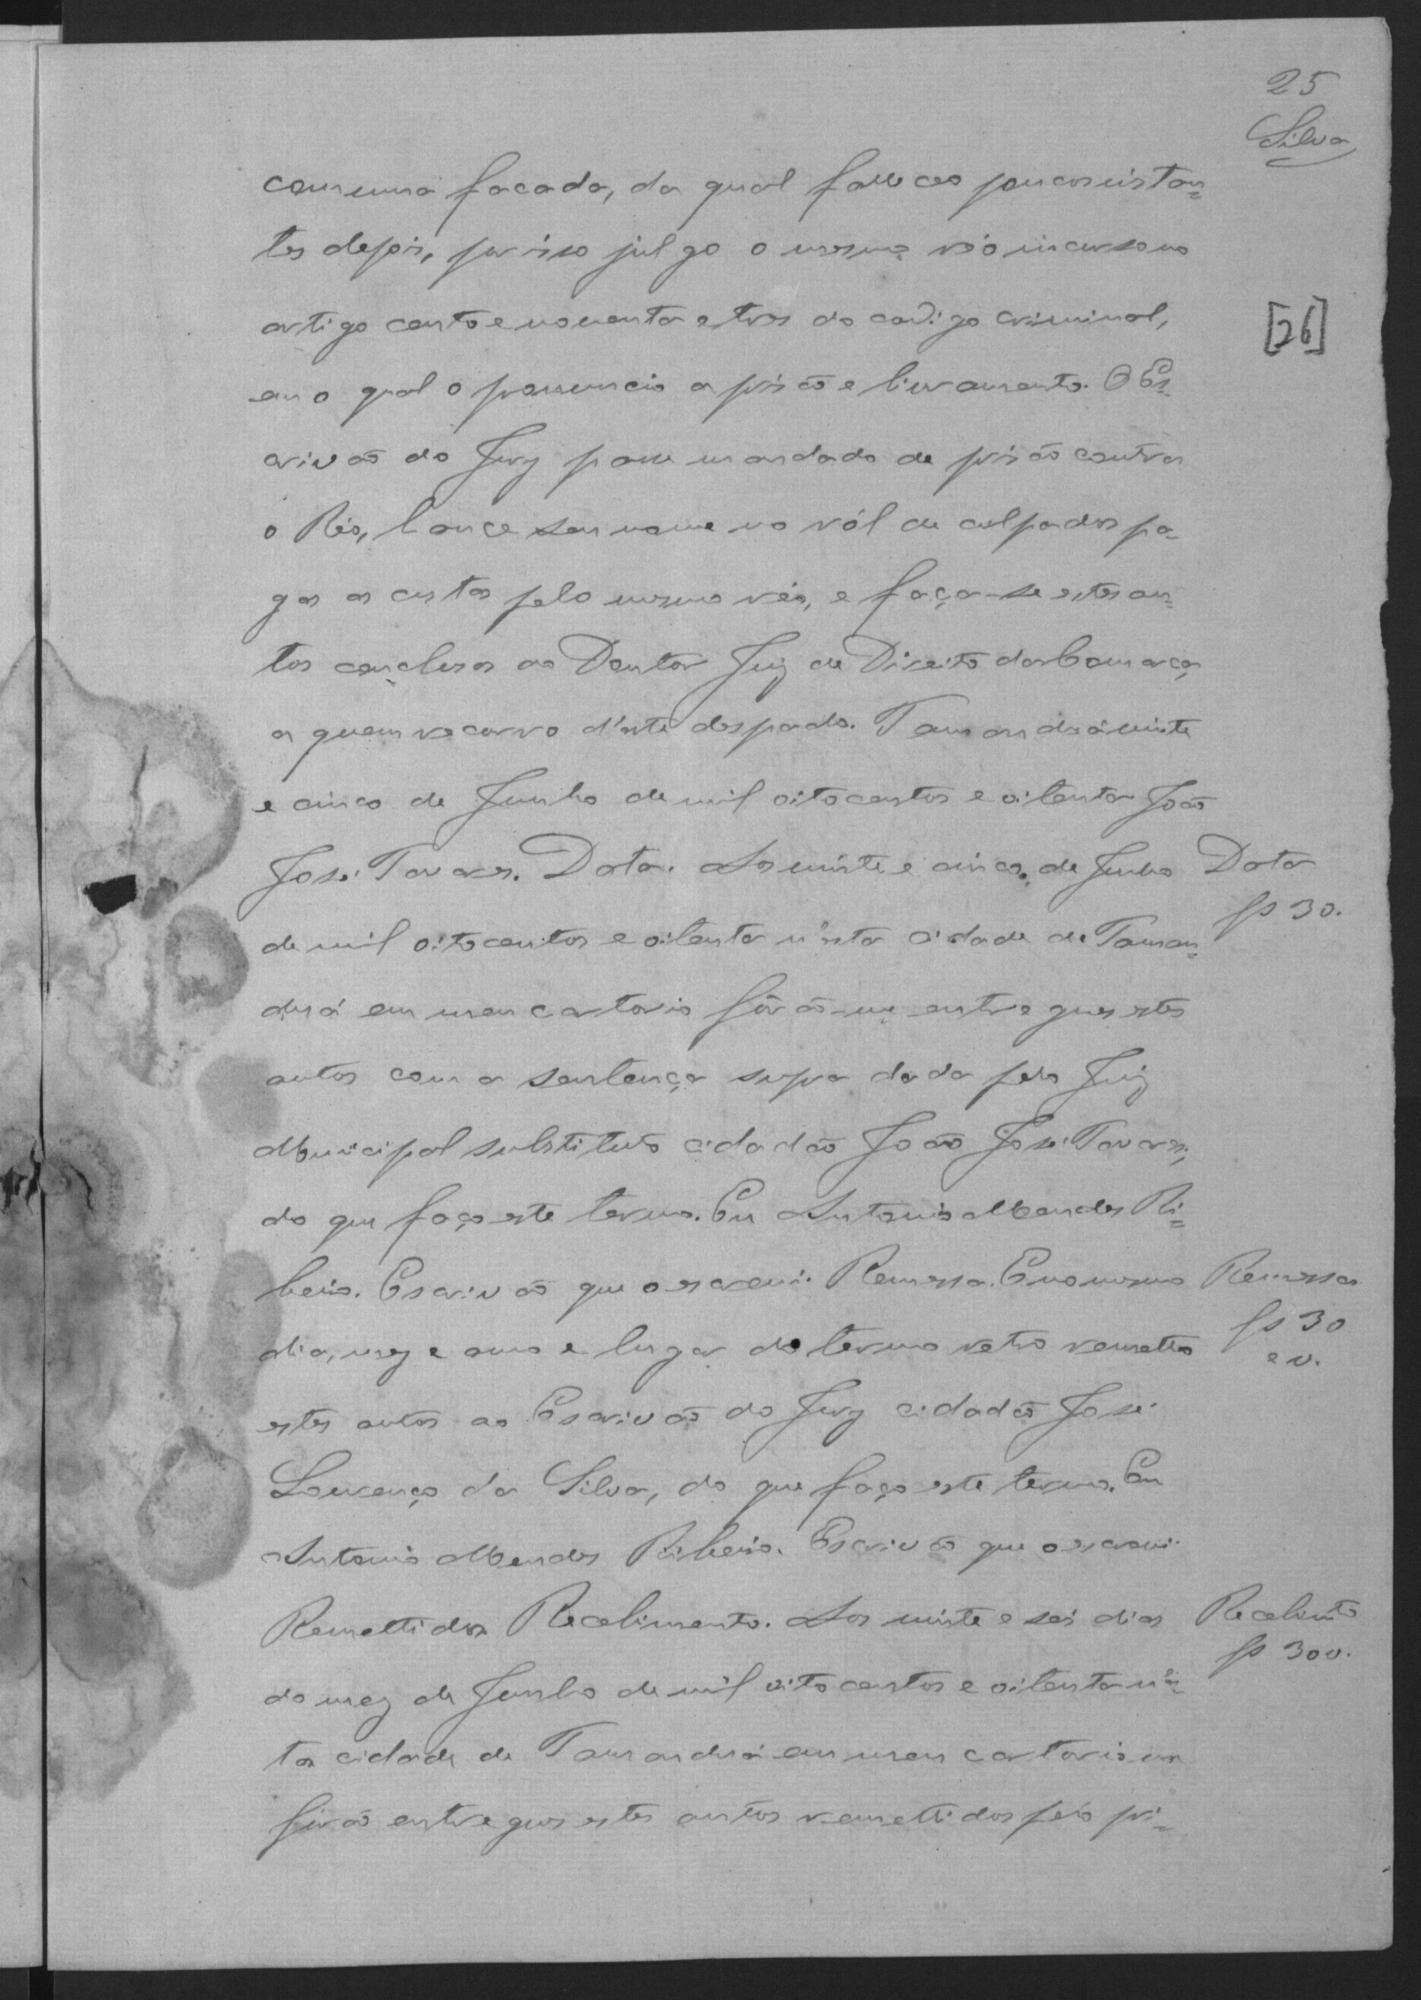 25
Silva
com uma facada, da qual falleceo poucos instan=
tes depois, por isso julgo o mesmo réo incurso no
artigo cento e noventa e tres do codigo criminal,
[26]
em o qual o pronuncio a prisão e livramento. O Es=
crivão do Jury passe mandado de prisão contra
o Réo, lance seu nome no ról de culpados pa=
gas as custas pelo mesmo réo, e faça-se estes au=
tos conclusos ao Doutor Juiz de Direito da Comarca,
a quem recorro d'este despacho. Tamanduá vinte
e cinco de Junho de mil oitocentos e oitenta João
José Tavares. Data. Aos vinte e cinco de Junho
Data
fs 30.
de mil oitocentos e oitenta n'esta cidade de Taman=
duá em meu cartorio fôrão-me entregues estes
autos com a sentença supra dada pelo Juiz
Municipal substituto cidadão João José Tavares,
do que faço este termo. Eu Antonio Mendes Ri=
beiro. Escrivão que o escrevi. Remessa. E no mesmo
Remessa
fs 30
e v.
dia, mez e anno e lugar do termo retro remetto
estes autos ao Escrivão do Jury cidadão José
Lourenço da Silva, do que faço este termo. Eu
Antonio Mendes Ribeiro. Escrivão que o escrevi.
Remettidos Recebimento. Aos vinte e seis dias
Recebimto
fs 30 v.
do mez de Junho de mil oito centos e oitenta n'es=
ta cidade de Tamanduá em meu cartorio me
fôrão entregues estes autos remettidos pelo pri=